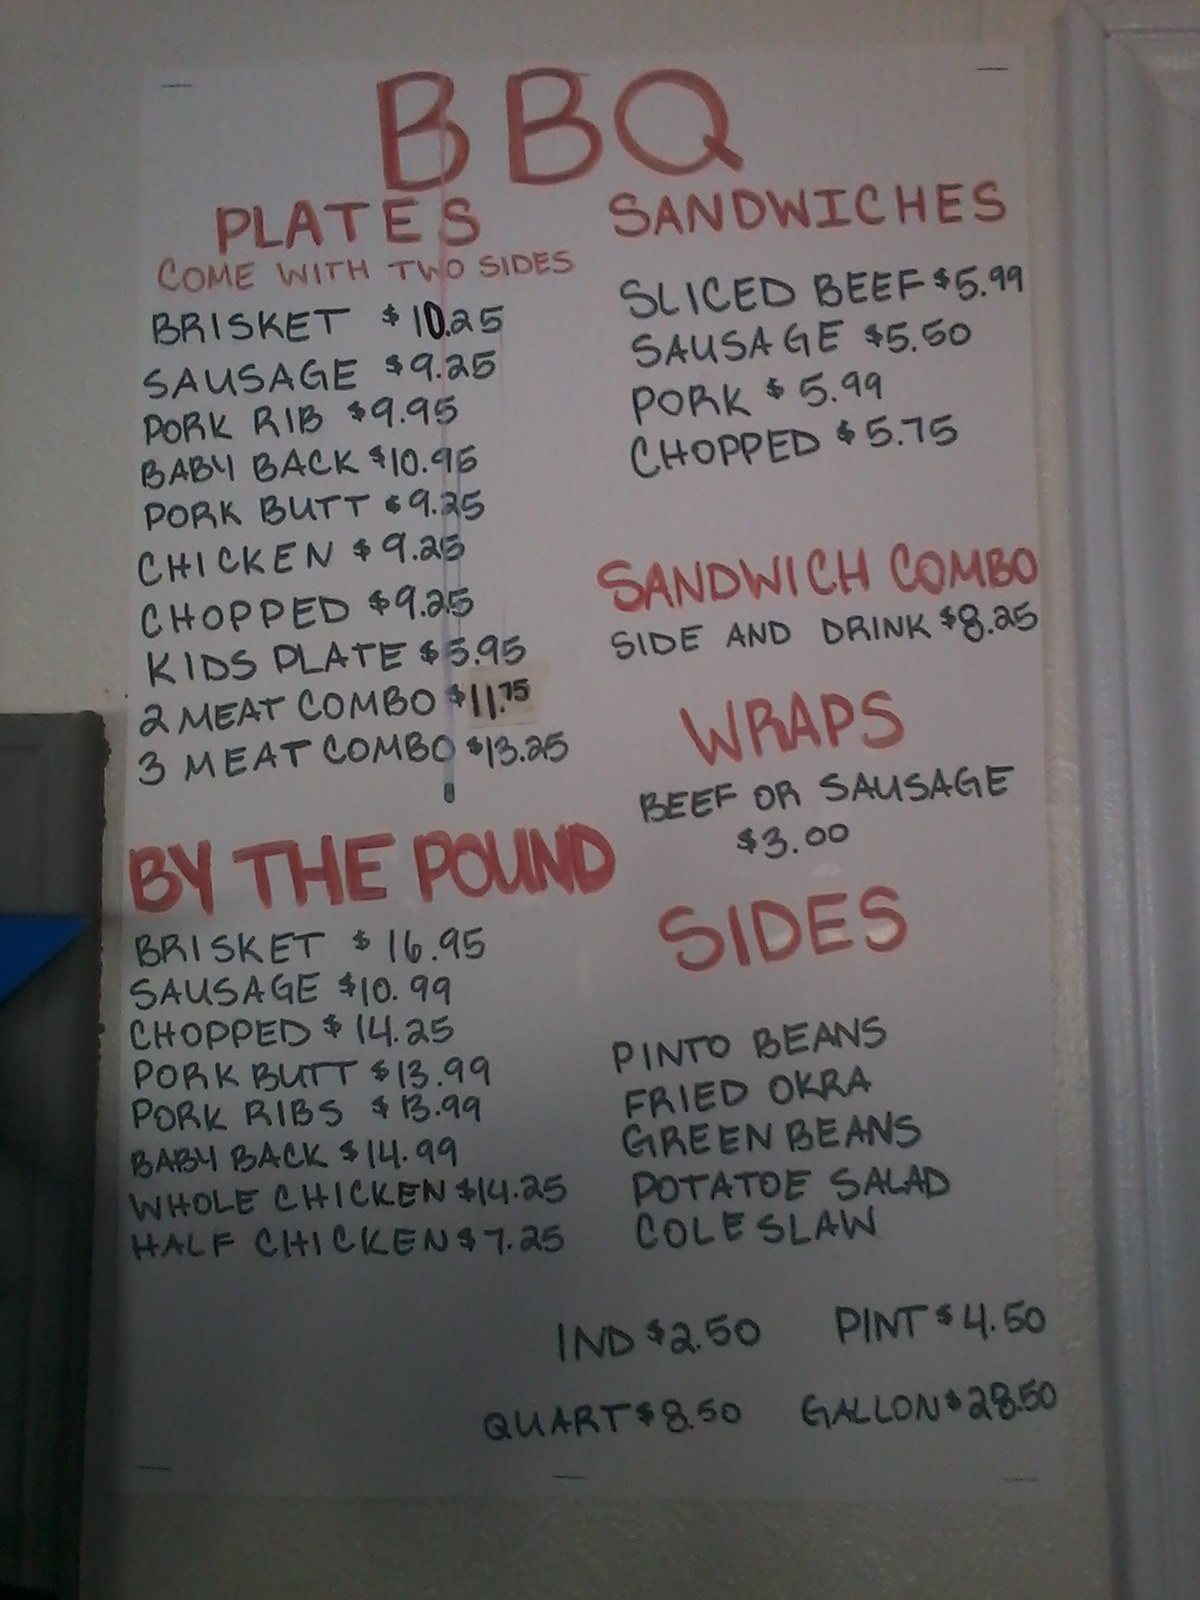 BBQ
PLATES
COME WITH TWO SIDES
BRISKET $10.25
SAUSAGE $9.25
PORK RIB $9.95
BABY BACK $10.95
PORK BUTT $9.25
CHICKEN $9.25
CHOPPED $9.25
KIDS PLATE $5.95
2 MEAT COMBO $11.75
3 MEAT COMBO $13.25
BY THE POUND
BRISKET $16.95
SAUSAGE $10.99
CHOPPED $14.25
PORK BUTT $13.99
PORK RIBS $13.99
BABY BACK $14.99
WHOLE CHICKEN $14.25
HALF CHICKEN $7.25
SANDWICHES
SLICED BEEF $5.99
SAUSAGE $5.50
PORK $5.99
CHOPPED $5.75
SANDWICH COMBO
SIDE AND DRINK $8.25
WRAPS
BEEF OR SAUSAGE
$3.00
SIDES
PINTO BEANS
FRIED OKRA
GREEN BEANS
POTATOE SALAD
COLE SLAW
IND $2.50 PINT $4.50
QUART $8.50 GALLON $28.50